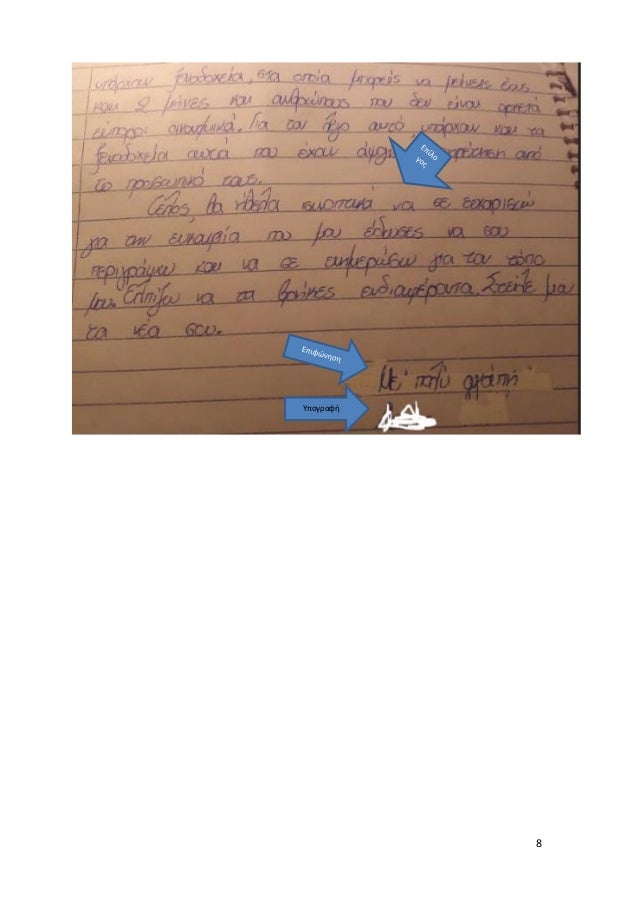 υπάρχουν ξενοδοχεία, στα οποία μπορείς να μείνεις έως
και 2 μήνες και ανθρώπους που δεν είναι αρκετά
εύποροι οικονομικά. Για τον λόγο αυτό υπάρχουν και τα
ξενοδοχεία αυτά που έχουν άψογη από
το προσωπικό τους.
Επίλο
γος
Τέλος, θα ήθελα να σε ευχαριστώ
για την ευκαιρία που μου έδωσες να σου
περιγράψω και να σε ενημερώσω για τον τόπο
μου. Ελπίζω να τα βρήκες ενδιαφέροντα. Στείλε μου
τα νέα σου.
Επιφώνηση
Με πολύ αγάπη
Υπογραφή
8